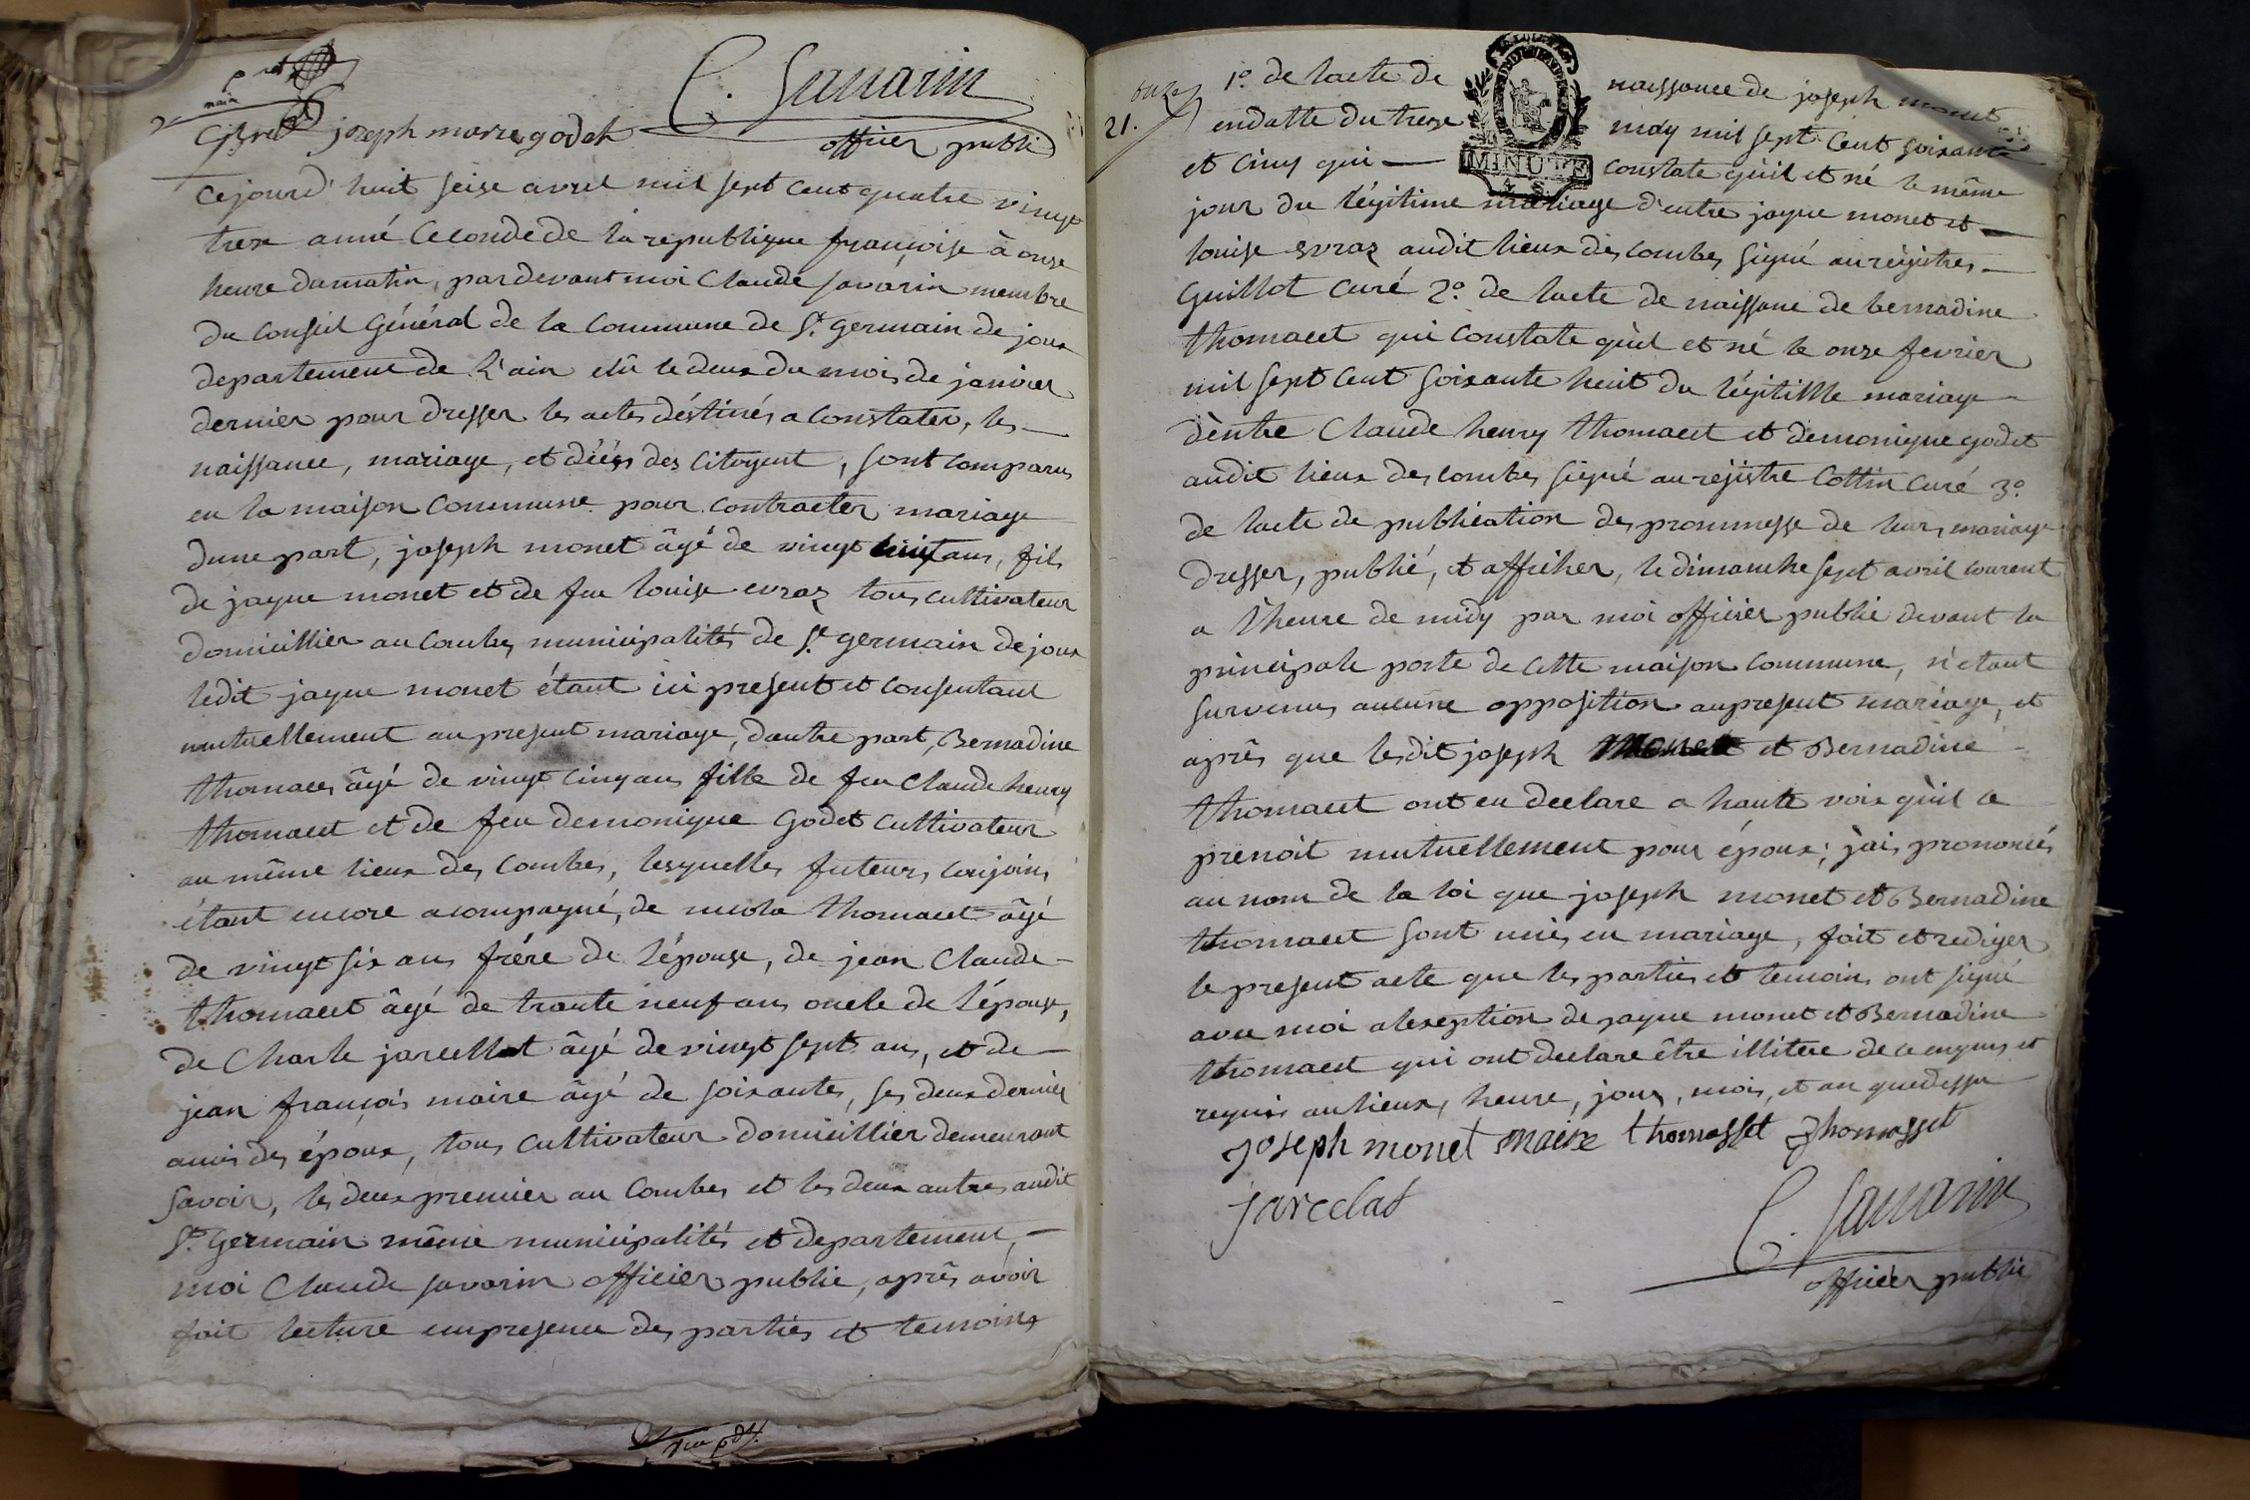 C. Savarin
joseph marie godet
officier public
Cejourd'huit seise avril mil sept cent quatre vingt
treze anné Ceconde de la republique françoise à onze
heure dumatin, pardevant moi Claude Savarin membre
du Conseil Général de la Commune de St. Germain de joux
departement de L'ain élû le deux du mois de janvier
dernier pour dresser les actes déstinés a Constater, les
naissance, mariage, et décés des Citoyent, sont Comparus
en la maison Commune pour Contracter mariage
dune part, joseph monet âgé de vingt huit ans, fils
de jaque monet et de feu louise evraz tous cultivateur
domicillier au Combes municipalités de St. germain de joux
ledit jaque monet étant ici present et Consentant
mutuellement au present mariage, dautre part, Bernadine
thomacet âgé de vingt cinq ans fille de feu Claude henry
thomacet et de feu demonique Godet Cultivateur
au même lieux des Combes, lesquelles futeurs Conjoins
étant encore acompagné, de nicola thomacet âgé
de vingt six ans frére de l'épouse, de jean Claude
thomacet âgé de trante neuf ans oncle de l'épouse,
de Charle jarcellat âgé de vingt sept ans, et de
jean françois maire âgé de soixante, ses deux dernier
amis des époux, tous Cultivateur domicillier demeurant
savoir, les deux premier au Combes et les deux autres audit
St. Germain même municipalités et departement,
moi Claude savarin officier public, après avoir
fait lecture empresence des parties et temoins
onze
21.
1o. de lacte de naissance de joseph monet
endatte du treze may mil sept Cent soixante
et Cinq qui Constate qu'il et né le même
MINUTE
jour du légitime mariage d'entre jaque monet et
louise evraz audit lieux des Combes signé au régistres
Guillot Curé 2o. de lacte de naissane de bernadine
thomacet qui Constate qu'il et né le onze fevrier
mil sept Cent soixante huit du légitille mariage
d'entre Claude henry thomacet et demonique godet
audit lieux des Combes signé au réjistre Cottin Curé 3o.
de lacte de publication des prommesse de leurs mariage
dresser, publié, et afficher, le dimanche sept avril courent
a l'heure de midy par moi officier public devant la
principale porte de Cette maison Commune, n'etant
survenus aucune opposition au present mariage, et
après que lesdit joseph monet et Bernadine
thomacet ont eu declare a haute voix qu'il ce
prenoit mutuellement pour époux; j'ais prononcés
au nom de la loi que joseph monet et Bernadine
thomacet sont unis en mariage, fait et rediger
le present acte que les parties et temoins ont signé
avec moi alexeption de jaque monet et Bernadine
thomacet qui ont declare être illitere de ce enquis et
requis au lieux, heure, jour, mois, et an quedessu
joseph monet maire thomasset thomasset
jarcelat
C. Savarin
officier public